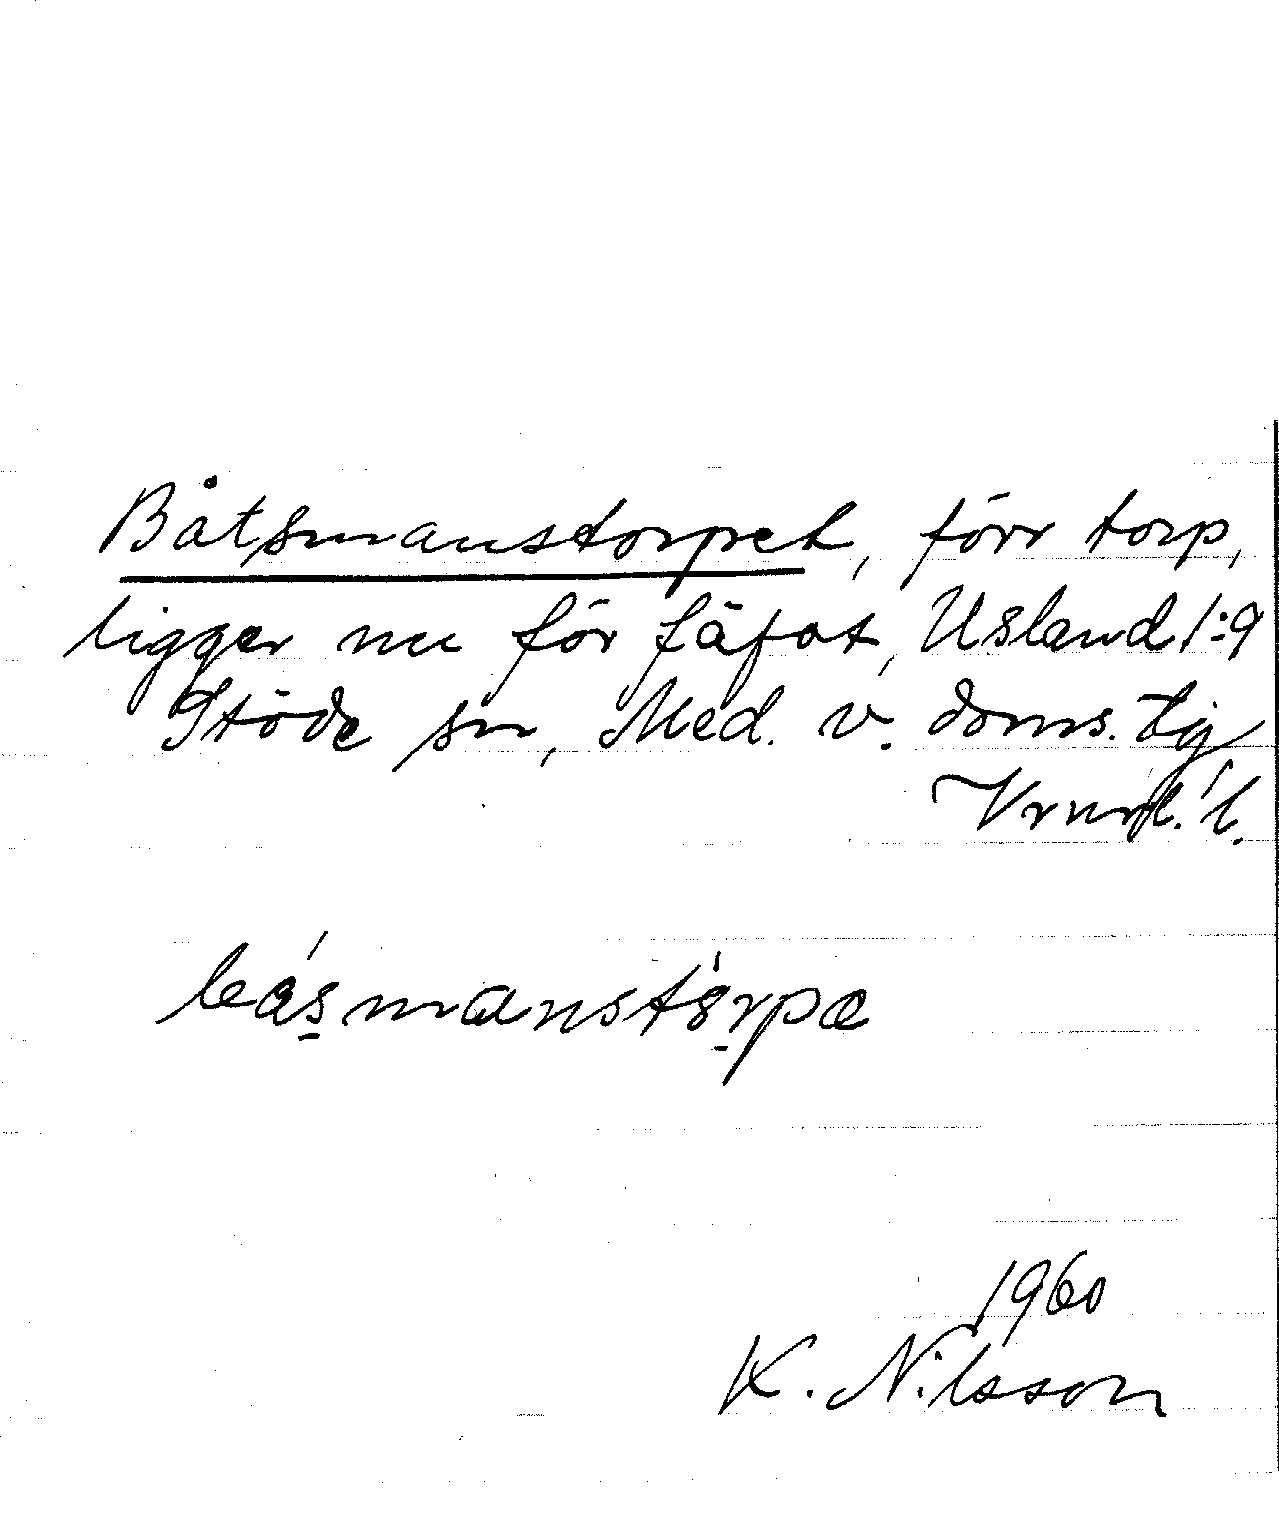 Båtsmanstorpet, förr torp,
ligger nu för fäfot, Usland 1:9
Stöde sn, Med. v. doms. tg
1960
K. Nilsson